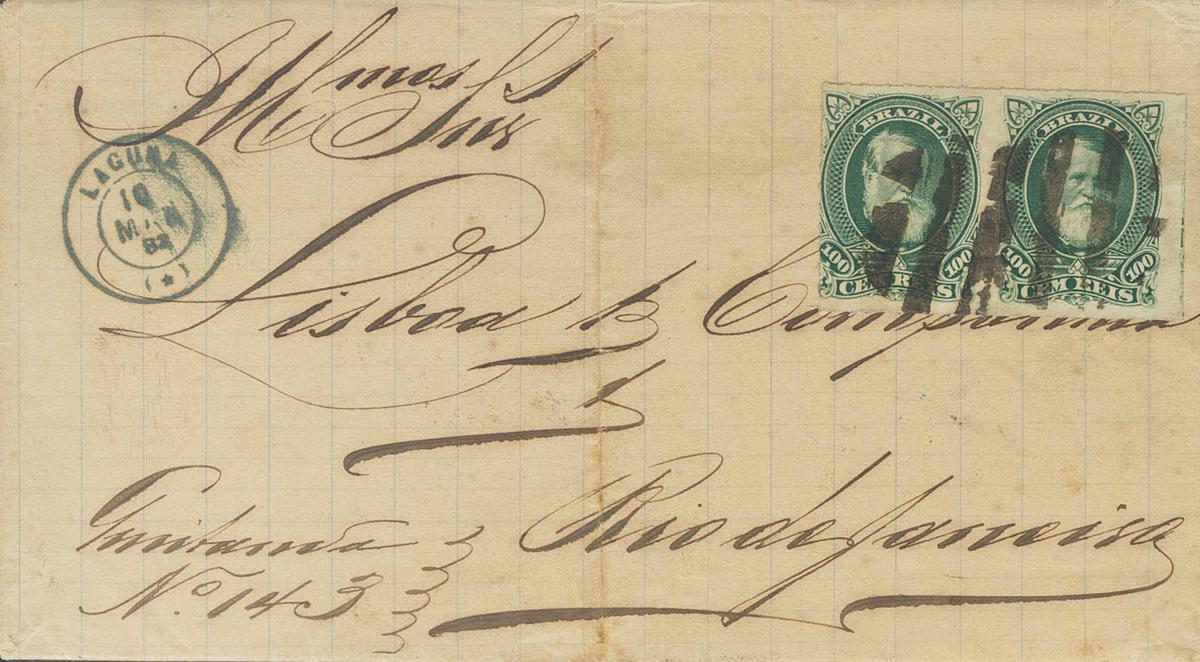 Illmos Srs
BRAZIL BRAZIL
100 100 100 100
CEM REIS CEM REIS
LAGUNA
10
MAR
82
(★)
Lisboa & Companhia
Rio de Janeiro
Quitanda
No. 143